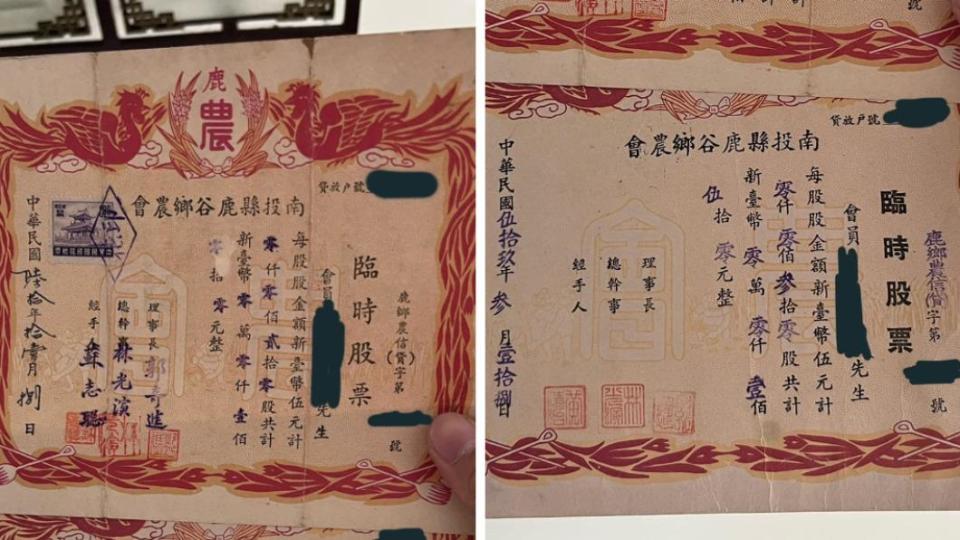 鹿
農
貸放戶號
南投縣鹿谷鄉農會
鹿鄉農信(貸)字第 號
臨時股票
會員 先生
每股股金額新臺幣伍元計
零仟零佰貳拾零股共計
新臺幣零萬零仟壹佰
零拾零元整
理事長
總幹事 林光演
經手
中華民國陸拾年拾壹月捌日
號
貸放戶號
南投縣鹿谷鄉農會
鹿鄉農信儲字第 號
臨時股票
會員 先生
每股股金額新臺幣伍元計
零仟零佰叁拾零股共計
新臺幣零萬零仟壹佰
伍拾零元整
理事長
總幹事
經手人
中華民國伍拾玖年叁月壹拾捌日